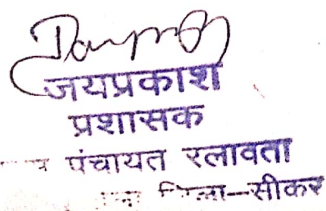 जयप्रकाश
प्रशासक
पंचायत रलावता
सीकर